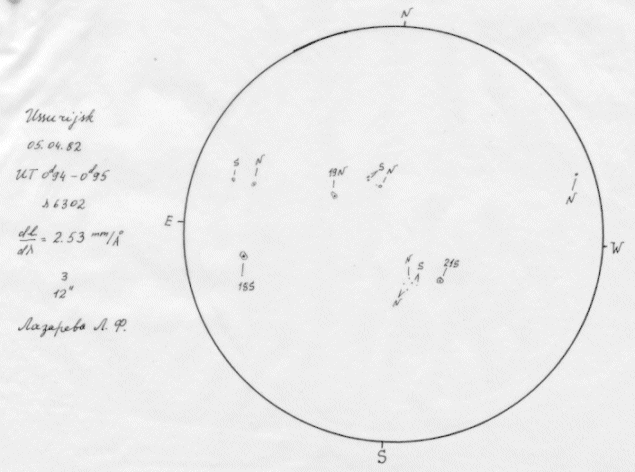 N
Ussurijsk
05.04.82
UT 0ᵈ94 – 0ᵈ95
λ6302
dl/dλ = 2.53 mm/Å
3
12"
Лазарева Л. Ф.
S N 19N S N
N
E
W
18S
N S 21S
N
S